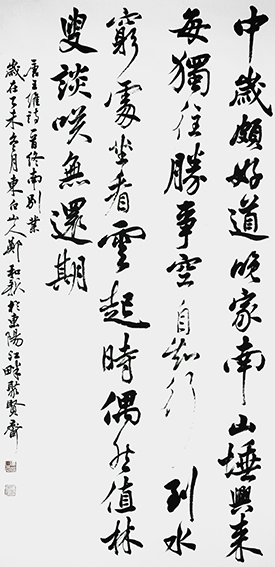 中歲頗好道晚家南山埵興來
每獨往勝事空自知行到水
窮處坐看雲起時偶然值林
叟談咲無還期
唐王維詩一首終南別業
歲在乙未冬月東白山人鄭和於東陽江畔聚賢齋